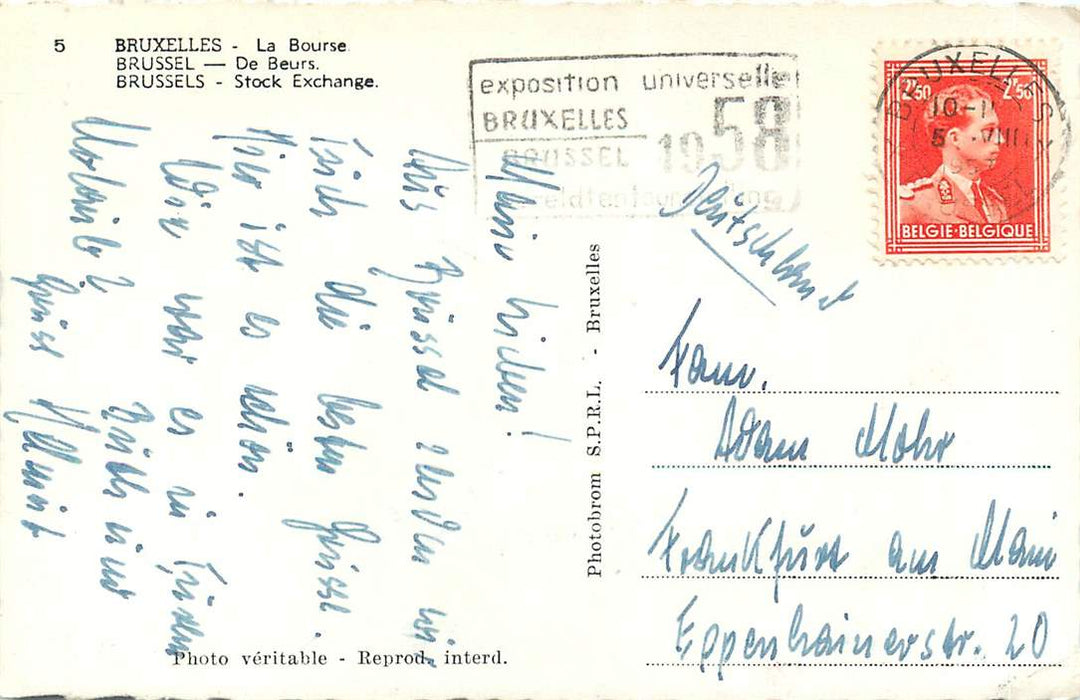 5 BRUXELLES - La Bourse.
BRUSSEL — De Beurs.
BRUSSELS - Stock Exchange.
exposition universelle
BRUXELLES
BRUSSEL 1958
BRUXELLES
10-
VIII
2F50 2F50
BELGIE-BELGIQUE
Meine Lieben!
Aus Brüssel senden wir
Euch die besten Grüsse.
Hier ist es schön.
Wie war es in
Urlaub?
Gruss Ruth und
Helmut
Photobrom S.P.R.L. - Bruxelles
Deutschland
Fam.
Adam Mohr
Frankfurt am Main
Eppenhainerstr. 20
Photo véritable - Reprod. interd.